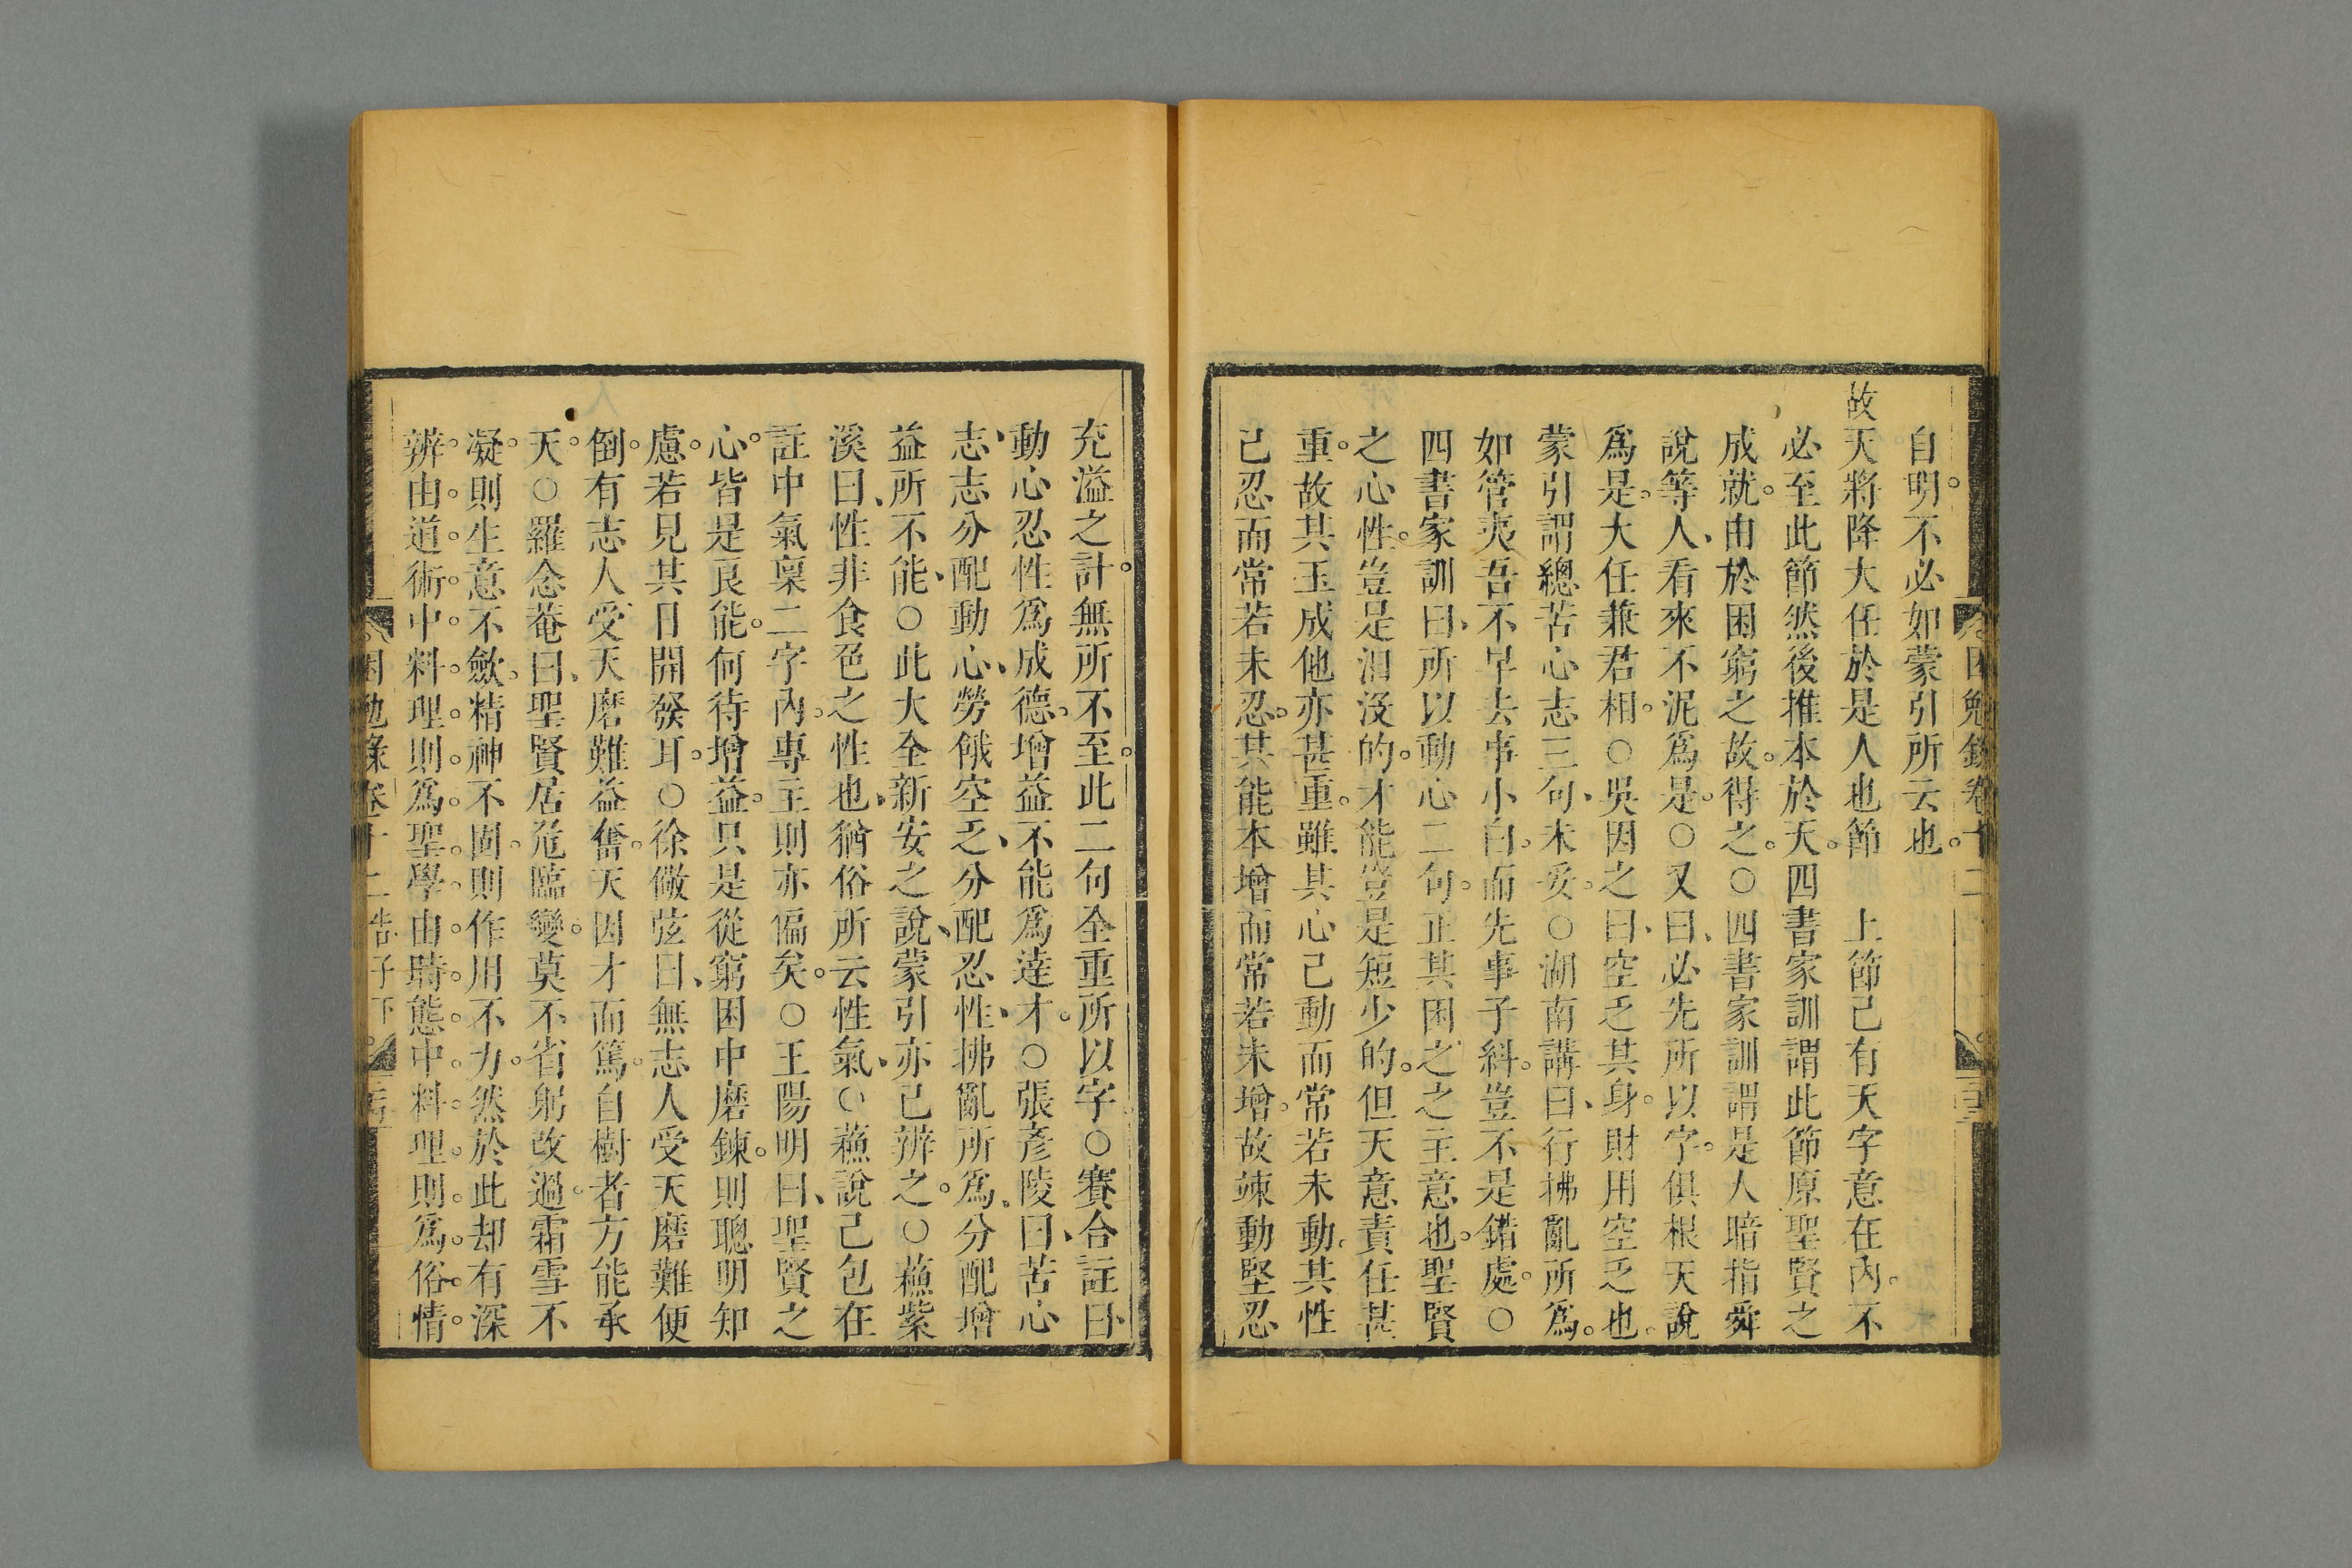 自明。不必如蒙引所云也。
故天將降大任於是人也節　上節已有天字意在內。不
必至此節然後推本於天。四書家訓謂此節原聖賢之
成就。由於困窮之故。得之。○四書家訓謂是人暗指舜
說等人、看來不泥爲是。○又曰、必先所以字。俱根天說
爲是。大任兼君相。○吳因之曰、空乏其身。財用空乏也。
蒙引謂總苦心志三句、未妥。○湖南講曰、行拂亂所爲。
如管夷吾不早去事小白。而先事子糾。豈不是錯處。○
四書家訓曰、所以動心二句。正其困之之主意也。聖賢
之心性。豈是汨沒的。才能豈是短少的。但天意責任甚
重。故其玉成他亦甚重。雖其心已動而常若未動。其性
已忍而常若未忍。其能本增而常若未增。故竦動堅忍
充溢之計。無所不至。此二句全重所以字。○賽合註曰、
動心忍性爲成德。增益不能爲達才。○張彥陵曰、苦心
志、志志分配動心、勞餓空乏、分配忍性、拂亂所爲、分配增
益所不能、○此大全新安之說、蒙引亦已辨之。○蘓紫
溪曰、性非食色之性也、猶俗所云性氣、○蘓說已包在
註中氣稟二字內。專主則亦偏矣。○王陽明曰、聖賢之
心。皆是良能。何待增益。只是從窮困中磨鍊。則聰明知
慮。若見其日開發耳。○徐儆弦曰、無志人受天磨難便
倒。有志人受天磨難益奮。天因才而篤。自樹者方能承
天。○羅念菴曰、聖賢居危臨變。莫不省躬改過。霜雪不
凝。則生意不斂。精神不固。則作用不力。然於此却有深
辨。由道術中料理則爲聖學。由時態中料理則爲俗情。
困勉錄卷十二
困勉錄卷十二 告子下